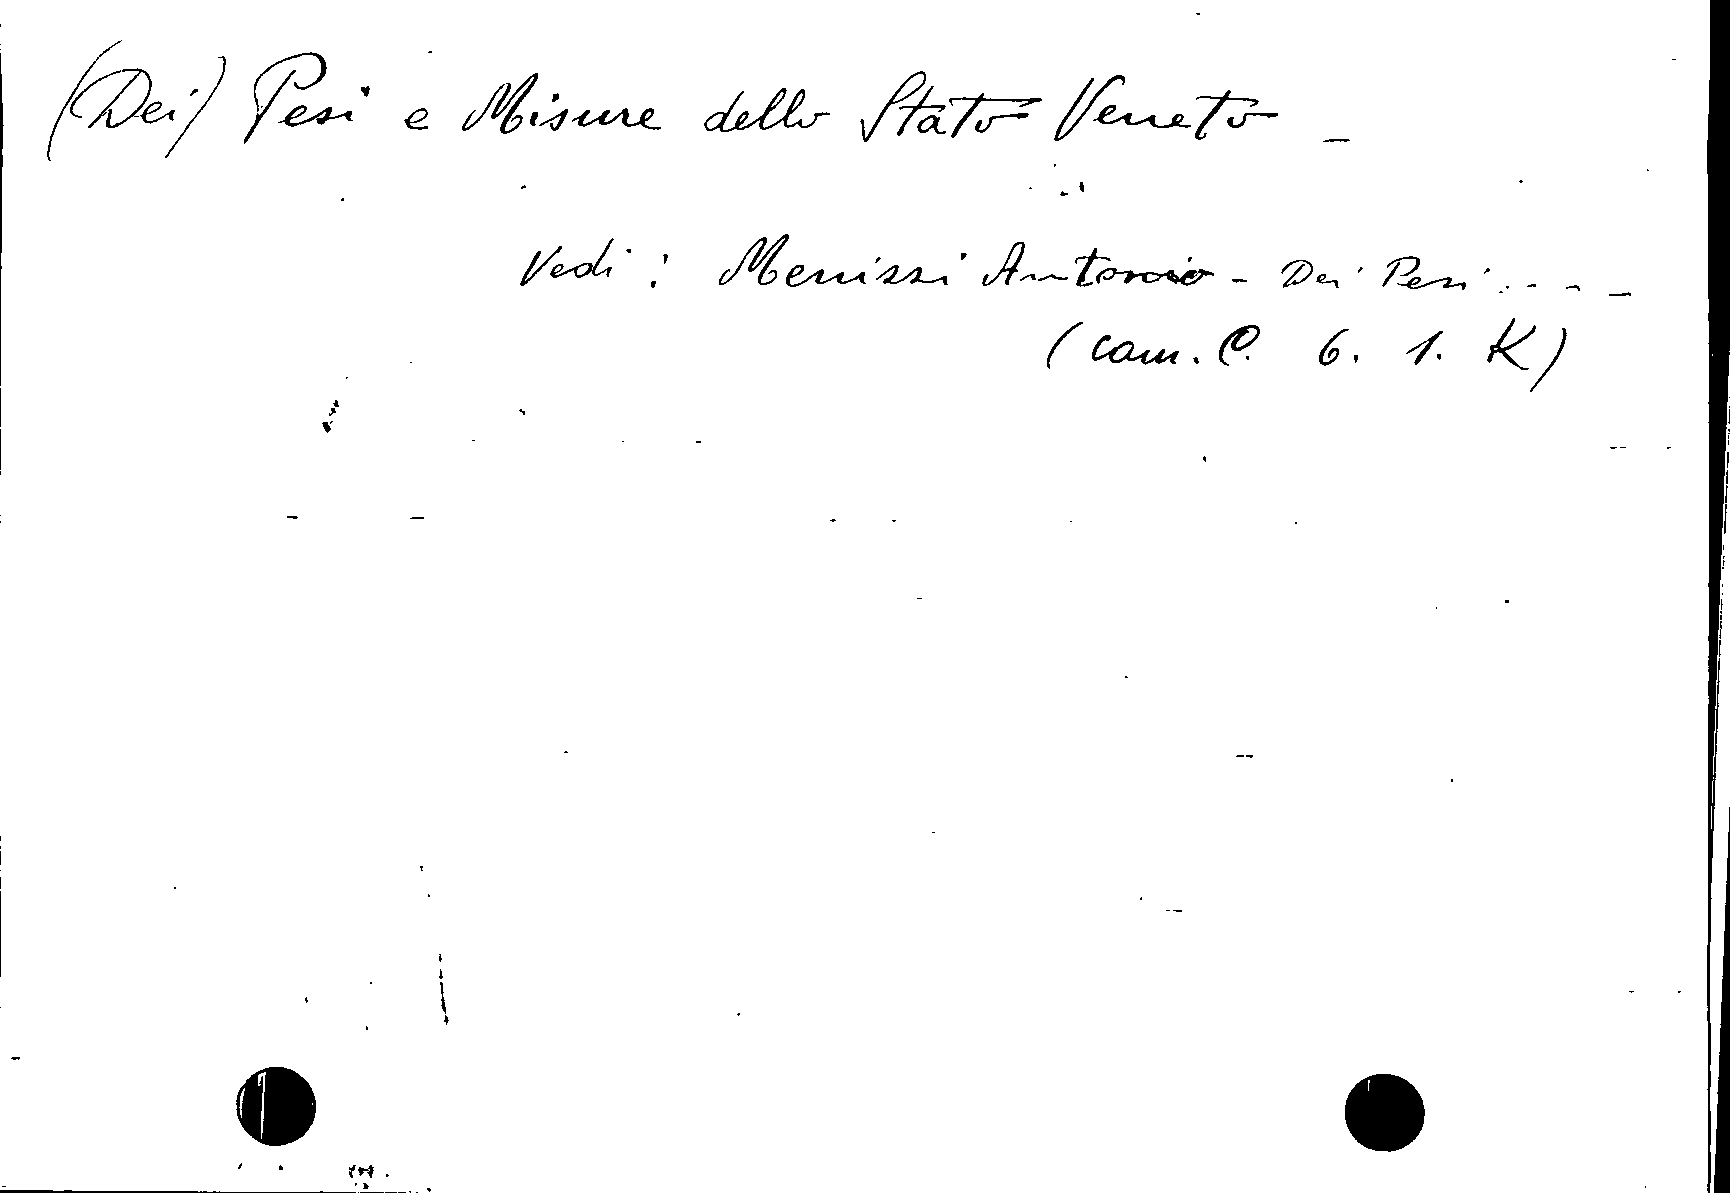 (Dei) Pesi e Misure dello Stato Veneto -
Vedi: Menissi Antonio - Dei Pesi....-
(cam. C. 6. 1. K)